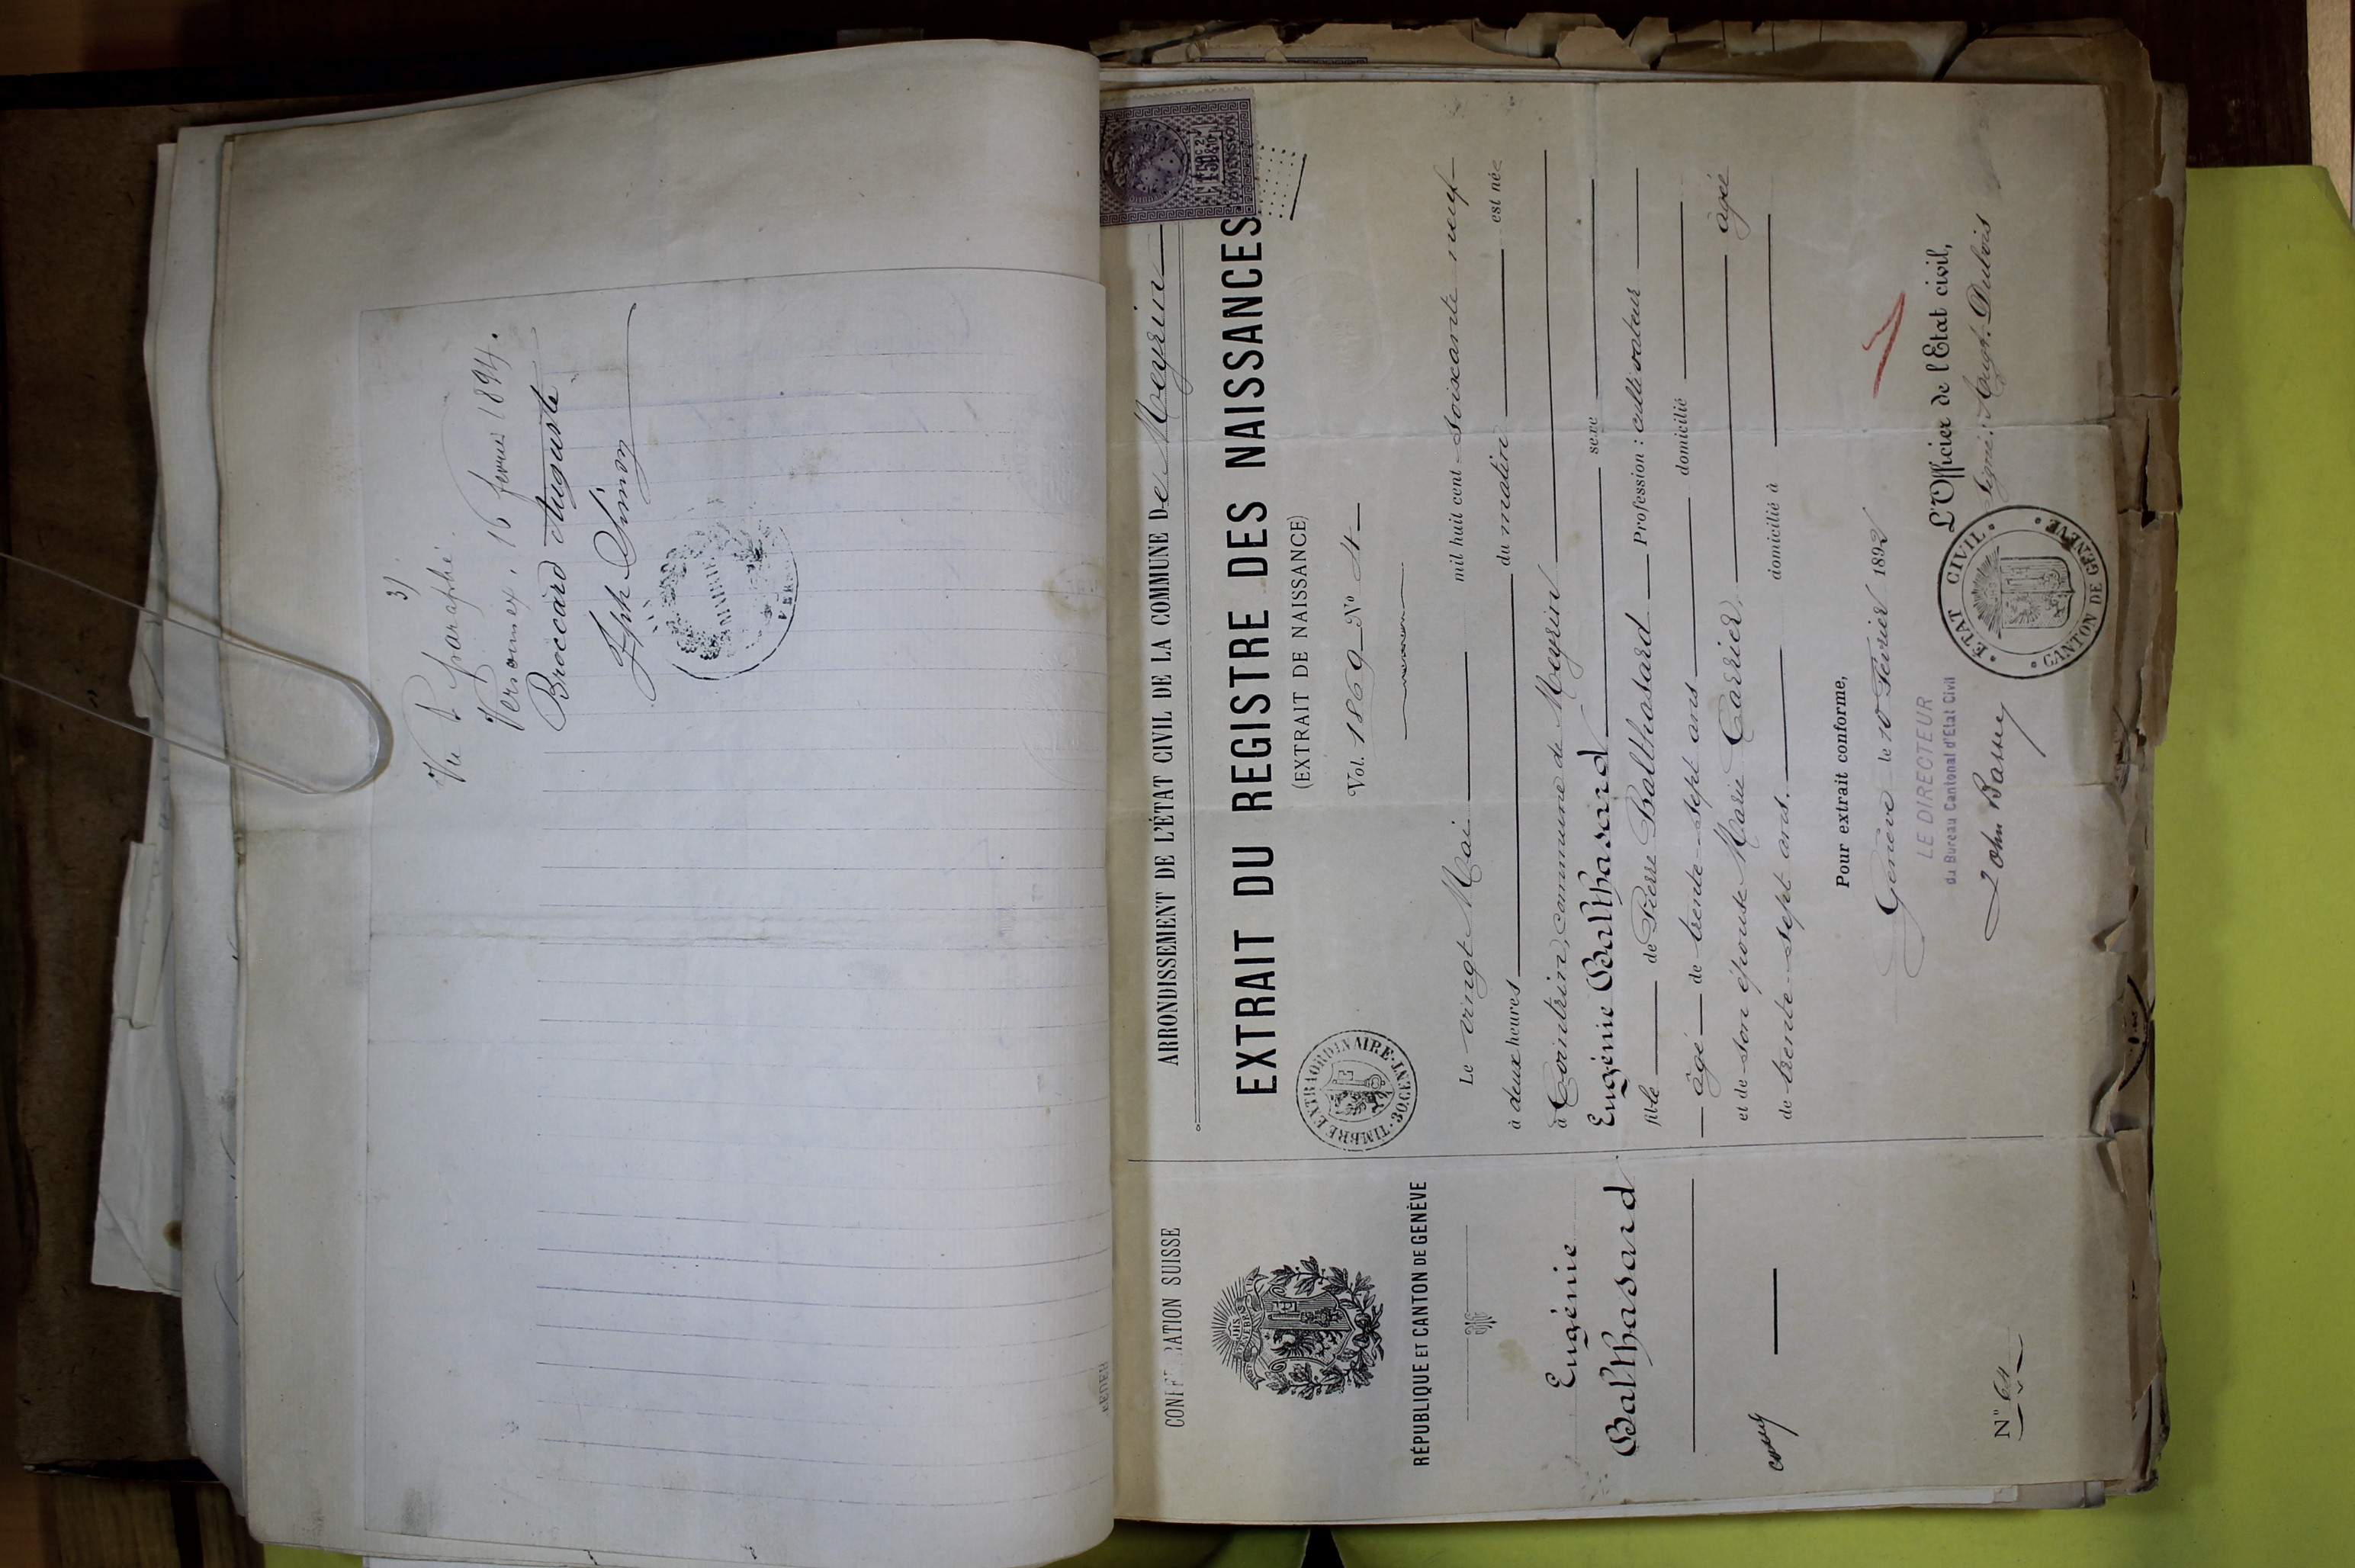 3/
Vu & paraphé.
Versonnex, 16 fevrier 1894.
Broccard Auguste
Jph Simon
MAIRIE
CONF RATION SUISSE
RÉPUBLIQUE ET CANTON DE GENÈVE
Eugénie
Balthasard
N° 64
ARRONDISSEMENT DE L'ÉTAT CIVIL DE LA COMMUNE De Meyrin
EXTRAIT DU REGISTRE DES NAISSANCES
(EXTRAIT DE NAISSANCE)
TIMBRE EXTRAORDINAIRE · 30 CENT.
Vol. 1869 N° 4
Le vingt Mai mil huit cent soixante neuf
à deux heures du matin est née
à Cointrin, commune de Meyrin
Eugénie Balthasard sexe
fille de Pierre Balthasard Profession : cultivateur
âgé de trente-sept ans domicilié
et de son épouse Marie Carrier, âgée
de trente-sept ans. domicilié à
Pour extrait conforme,
Genève le 10 Février 1892
LE DIRECTEUR
du Bureau Cantonal d'Etat Civil
L'Officier de l'Etat civil,
signé: Augt. Dubois
ETAT CIVIL
CANTON DE GENÈVE